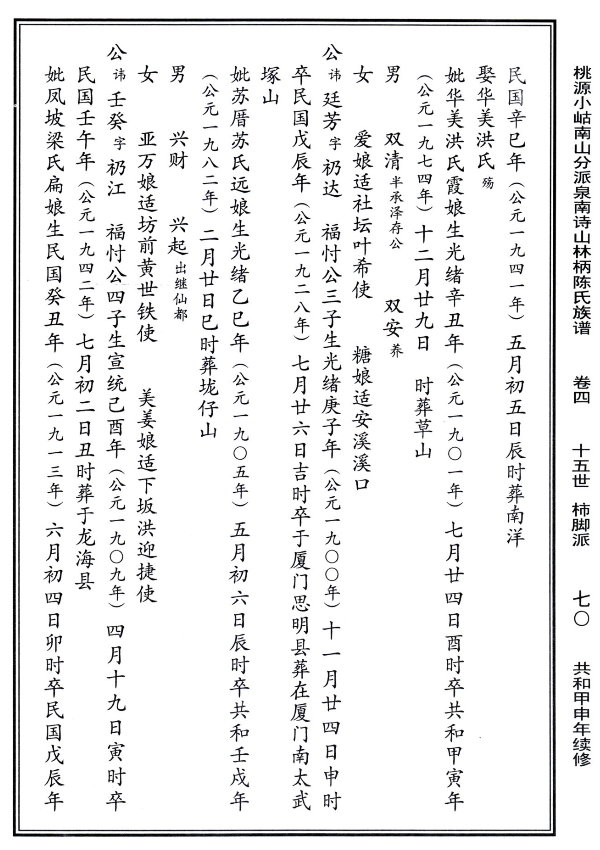 桃源小岵南山分派泉南诗山林柄陈氏族谱 卷四 十五世 柿脚派 七〇 共和甲申年续修
民国辛巳年（公元一九四一年）五月初五日辰时葬南洋
娶华美洪氏 殇
妣华美洪氏霞娘生光绪辛丑年（公元一九〇一年）七月廿四日酉时卒共和甲寅年
（公元一九七四年）十二月廿九日 时葬草山
男 双清 半承泽存公 双安 养
女 爱娘适社坛叶希使 糖娘适安溪溪口
公 讳 廷芳 字 礽达 福忖公三子生光绪庚子年（公元一九〇〇年）十一月廿四日申时
卒民国戊辰年（公元一九二八年）七月廿六日吉时卒于厦门思明县葬在厦门南太武
塚山
妣苏厝苏氏远娘生光绪乙巳年（公元一九〇五年）五月初六日辰时卒共和壬戌年
（公元一九八二年）二月廿日巳时葬垅仔山
男 兴财 兴起 出继仙都
女 亚万娘适坊前黄世铁使 美姜娘适下坂洪迎捷使
公 讳 壬癸 字 礽江 福忖公四子生宣统己酉年（公元一九〇九年）四月十九日寅时卒
民国壬午年（公元一九四二年）七月初二日丑时葬于龙海县
妣凤坡梁氏扁娘生民国癸丑年（公元一九一三年）六月初四日卯时卒民国戊辰年